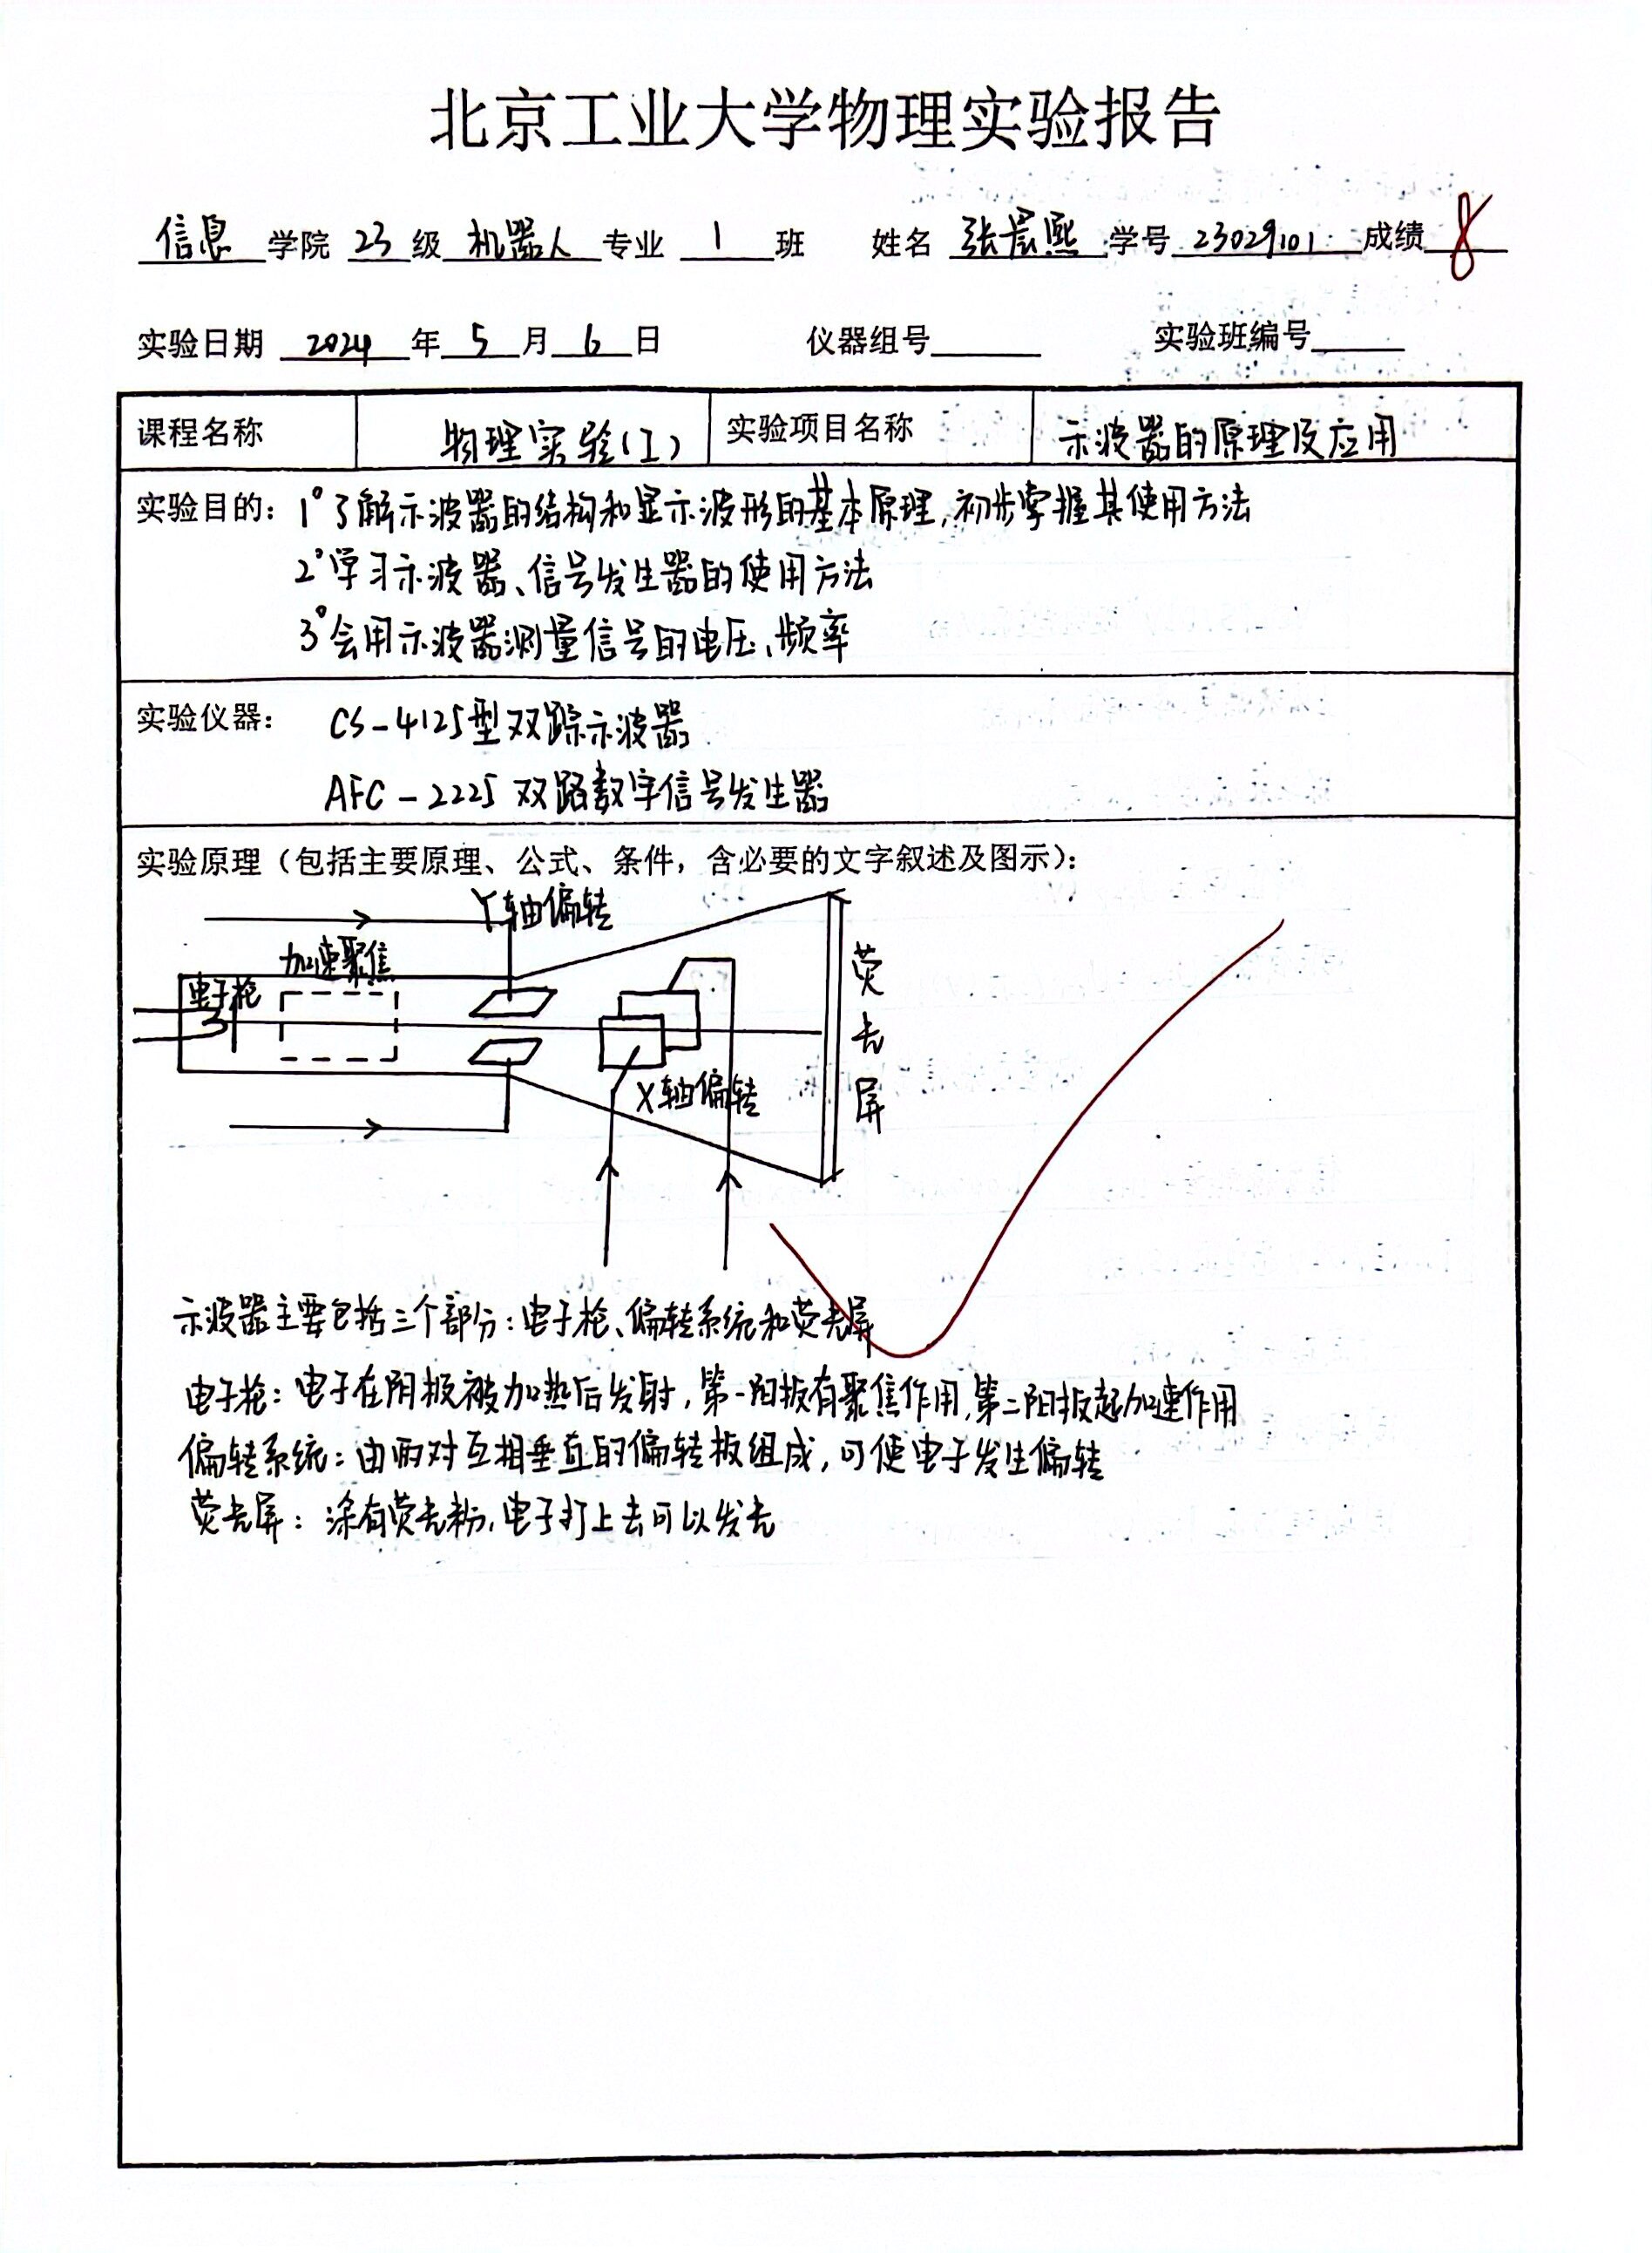 北京工业大学物理实验报告
信息 学院 23 级 机器人 专业 1 班 姓名 张宸熙 学号 23029101 成绩 8
实验日期 2024 年 5 月 6 日 仪器组号 实验班编号
课程名称 物理实验(I) 实验项目名称 示波器的原理及应用
实验目的: 1°了解示波器的结构和显示波形的基本原理,初步掌握其使用方法
2°学习示波器、信号发生器的使用方法
3°会用示波器测量信号的电压、频率
实验仪器: CS-4125型双踪示波器
AFC-2225 双路数字信号发生器
实验原理(包括主要原理、公式、条件,含必要的文字叙述及图示):
Y轴偏转
加速聚焦
电子枪
荧光屏
X轴偏转
示波器主要包括三个部分:电子枪、偏转系统和荧光屏
电子枪:电子在阴极被加热后发射,第一阳极有聚焦作用,第二阳极起加速作用
偏转系统:由两对互相垂直的偏转板组成,可使电子发生偏转
荧光屏:涂有荧光粉,电子打上去可以发光